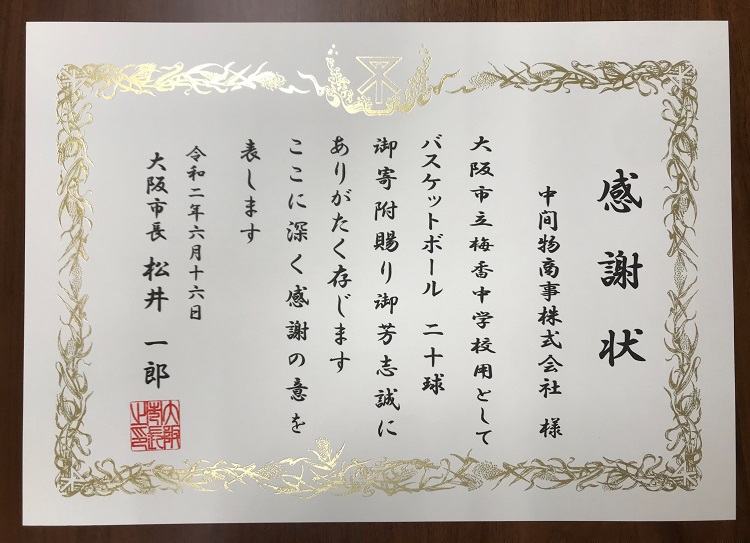 感謝状
中間物商事株式会社 様
大阪市立梅香中学校用として
バスケットボール 二十球
御寄附賜り御芳志誠に
ありがたく存じます
ここに深く感謝の意を
表します
令和二年六月十六日
大阪市長 松井 一郎
大阪市長之印